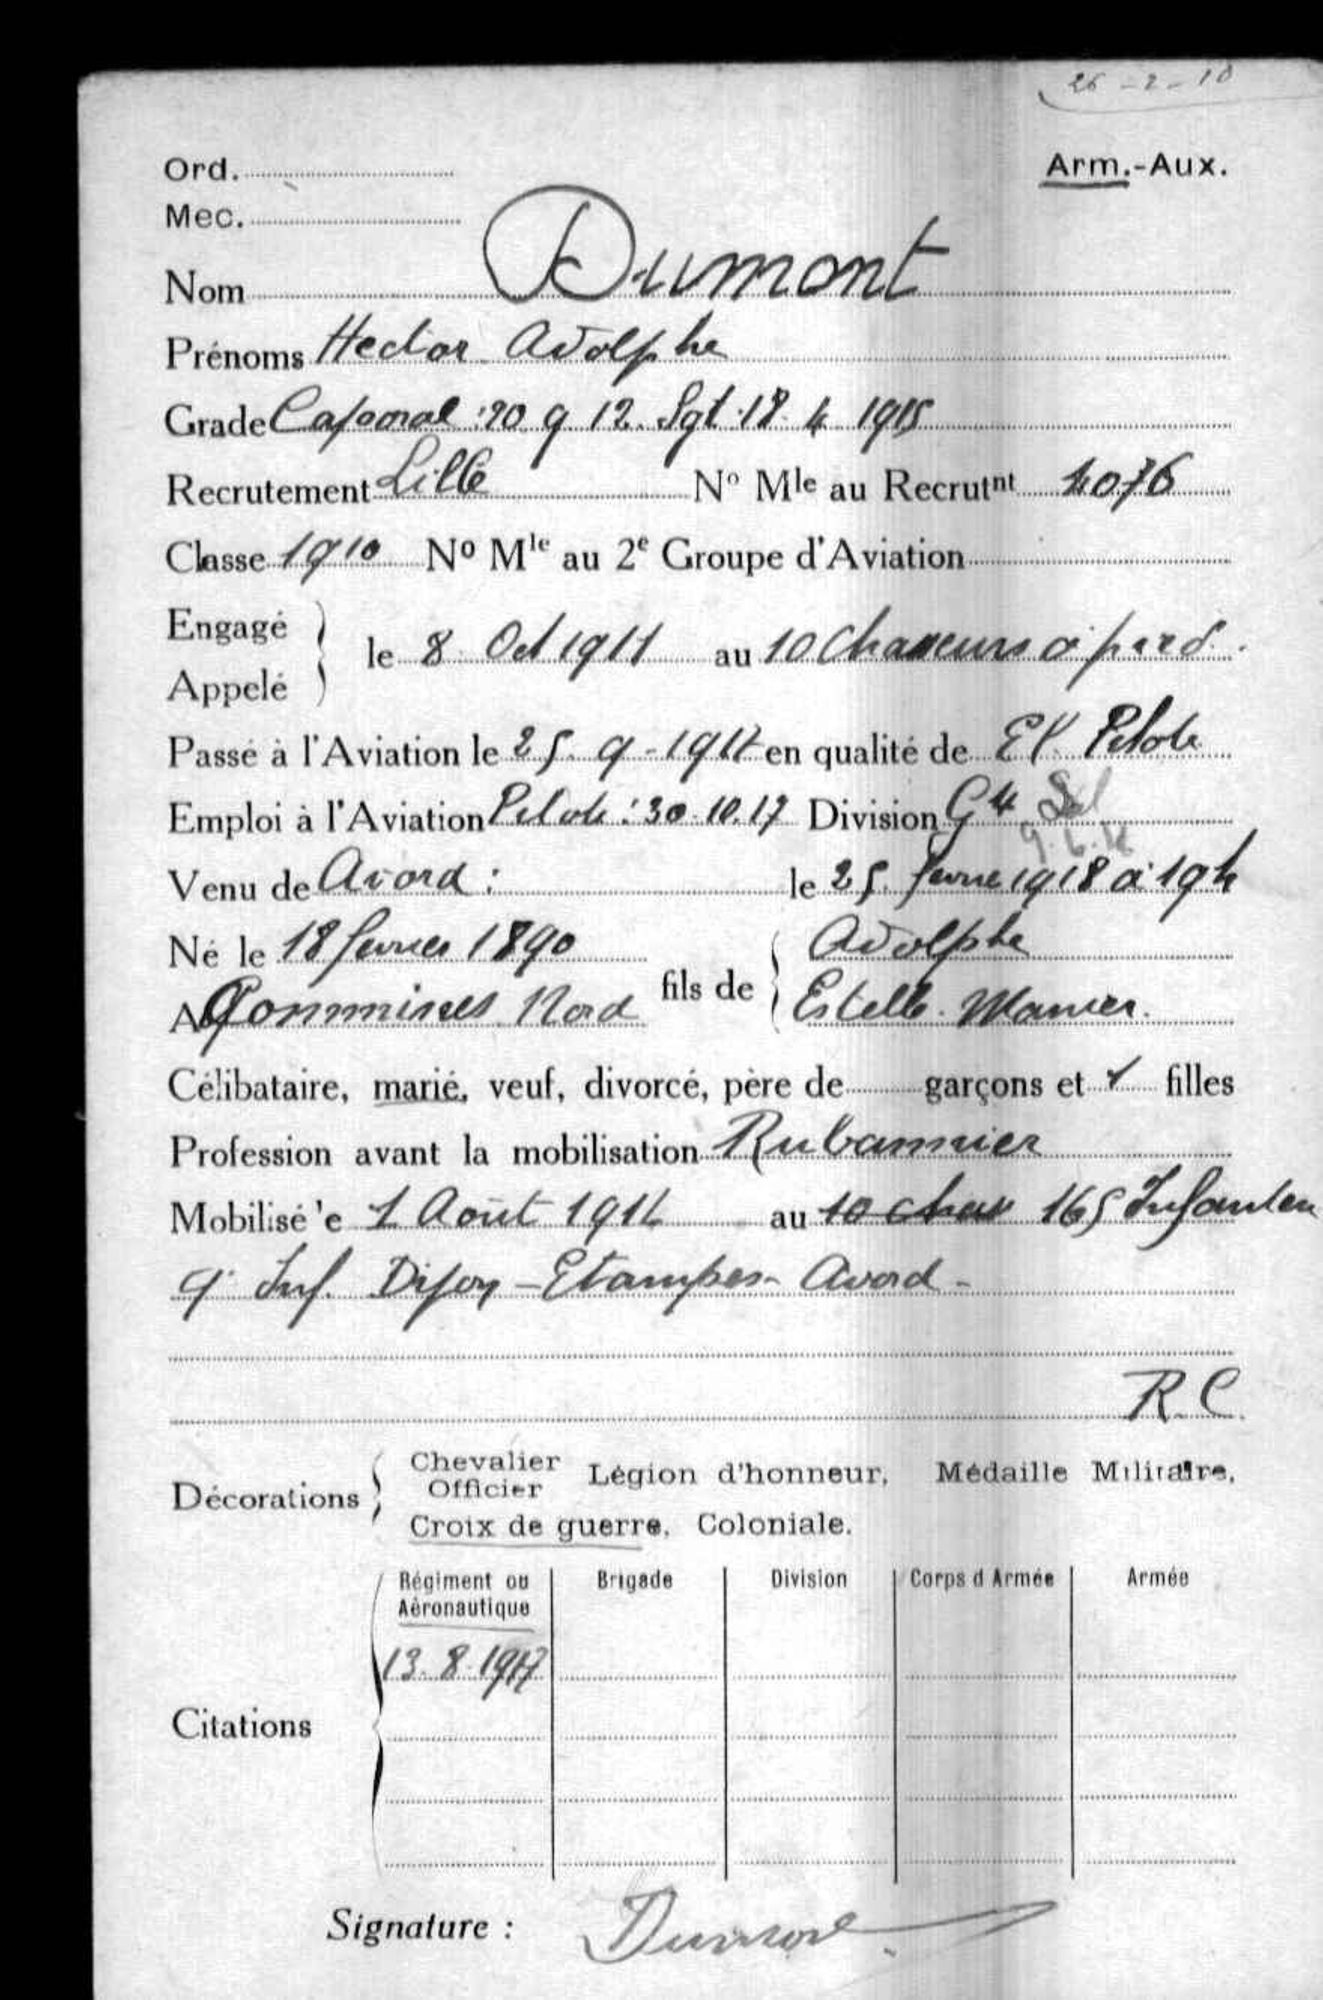 26-2-18
Ord.
Arm.-Aux.
Mec.
Nom Dumont
Prénoms Hector Adolphe
Grade Caporal : 20 9 12. Sgt. 18. 4 1915
Recrutement Lille N° Mle au Recrutnt 4076
Classe 1910 No Mle au 2e Groupe d'Aviation
Engagé
Appelé
le 8 Oct 1911 au 10 Chasseurs à pied.
Passé à l'Aviation le 25. 9-1917 en qualité de El Pilote
Emploi à l'Aviation Pilote : 30.10.17 Division G4
Venu de Avord : le 25. fevrie 1918 à 19h
Né le 18 fevrier 1890
A Commines Nord
fils de
Adolphe
Estelle
Célibataire, marié, veuf, divorcé, père de garçons et 1 filles
Profession avant la mobilisation Rubannier
Mobilisé le 1 Août 1914 au 10 chas 165 Infanterie
9e Inf. Dijon - Etampes - Avord -
R.C.
Décorations
Chevalier
Officier
Légion d'honneur, Médaille Militaire,
Croix de guerre, Coloniale.
Citations
Régiment ou Aéronautique
Brigade
Division
Corps d'Armée
Armée
13. 8. 1917
Signature : Dumont